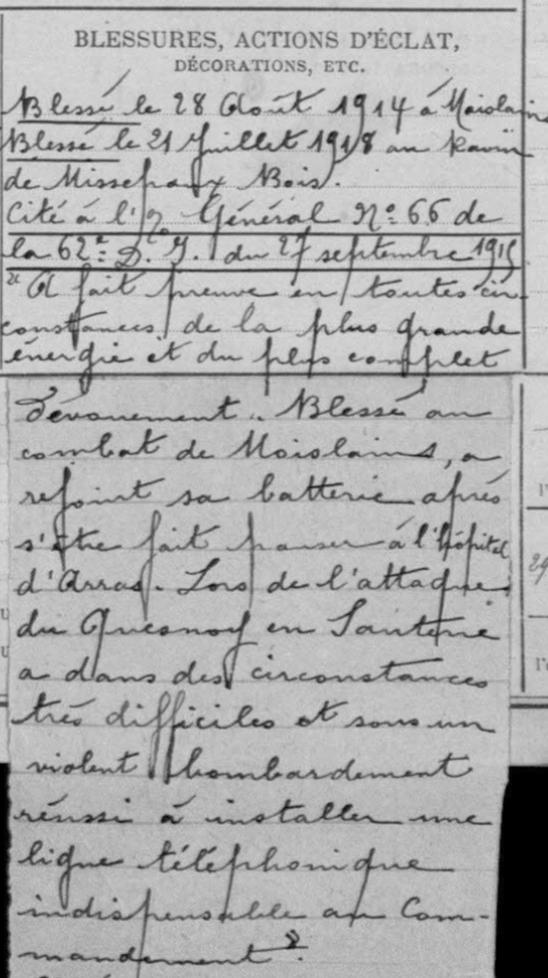 BLESSURES, ACTIONS D'ÉCLAT,
DÉCORATIONS, ETC.
Blessé le 28 Août 1914 à Moislains
Blessé le 21 Juillet 1918 au Ravin
de Missepaux Bois.
Cité à l'o Général No 66 de
la 62e D. I. du 27 septembre 1915
"A fait preuve en toutes cir-
constances de la plus grande
énergie et du plus complet
dévouement. Blessé au
combat de Moislains, a
rejoint sa batterie après
s'être fait panser à l'hôpital
d'Arras. Lors de l'attaque
du Quesnoy en Santerre
a dans des circonstances
très difficiles et sous un
violent bombardement
réussi à installer une
ligne téléphonique
indispensable au Com-
mandement".